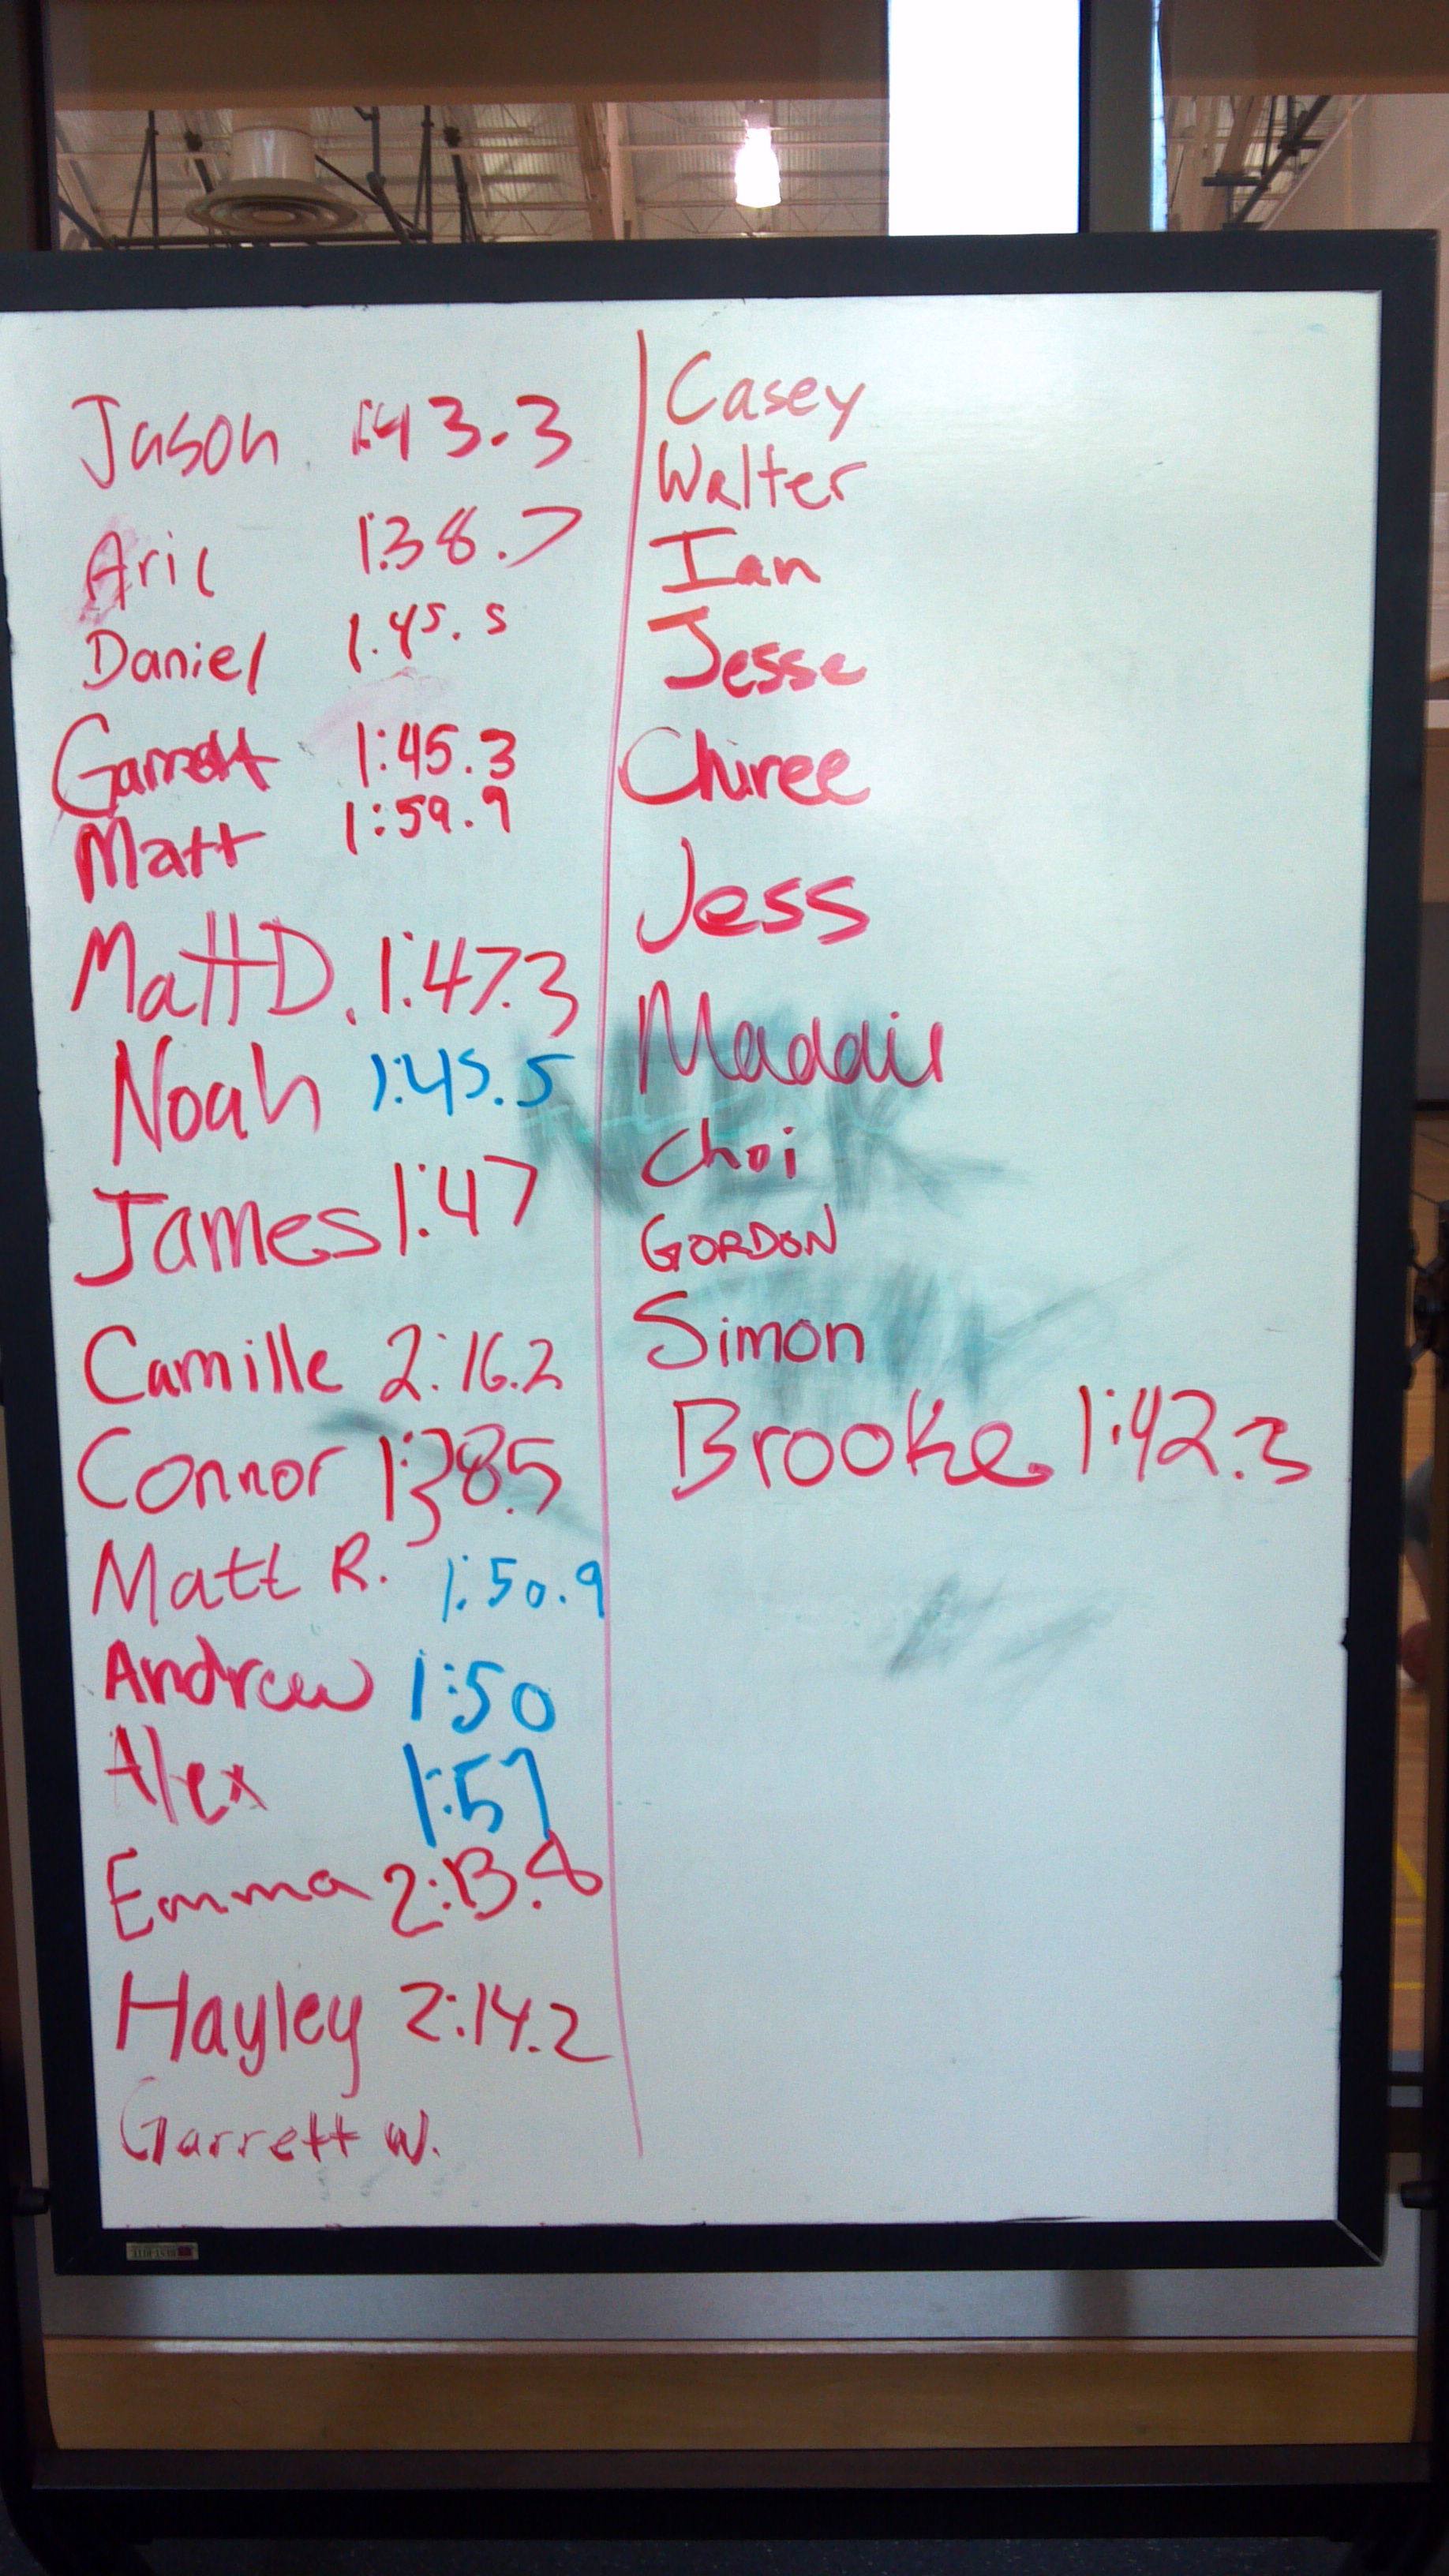 Jason 1:43.3
Aric 1:38.7
Daniel 1.45.5
Garrett 1:45.3
Matt 1:59.9
Matt D. 1:47.3
Noah 1:45.5
James 1:47
Camille 2:16.2
Connor 1:38.5
Matt R. 1:50.9
Andrew 1:50
Alex 1:57
Emma 2:13.8
Hayley 2:14.2
Garrett W.
Casey
Walter
Ian
Jesse
Chiree
Jess
Maddie
Choi
GORDON
Simon
Brooke 1:42.3